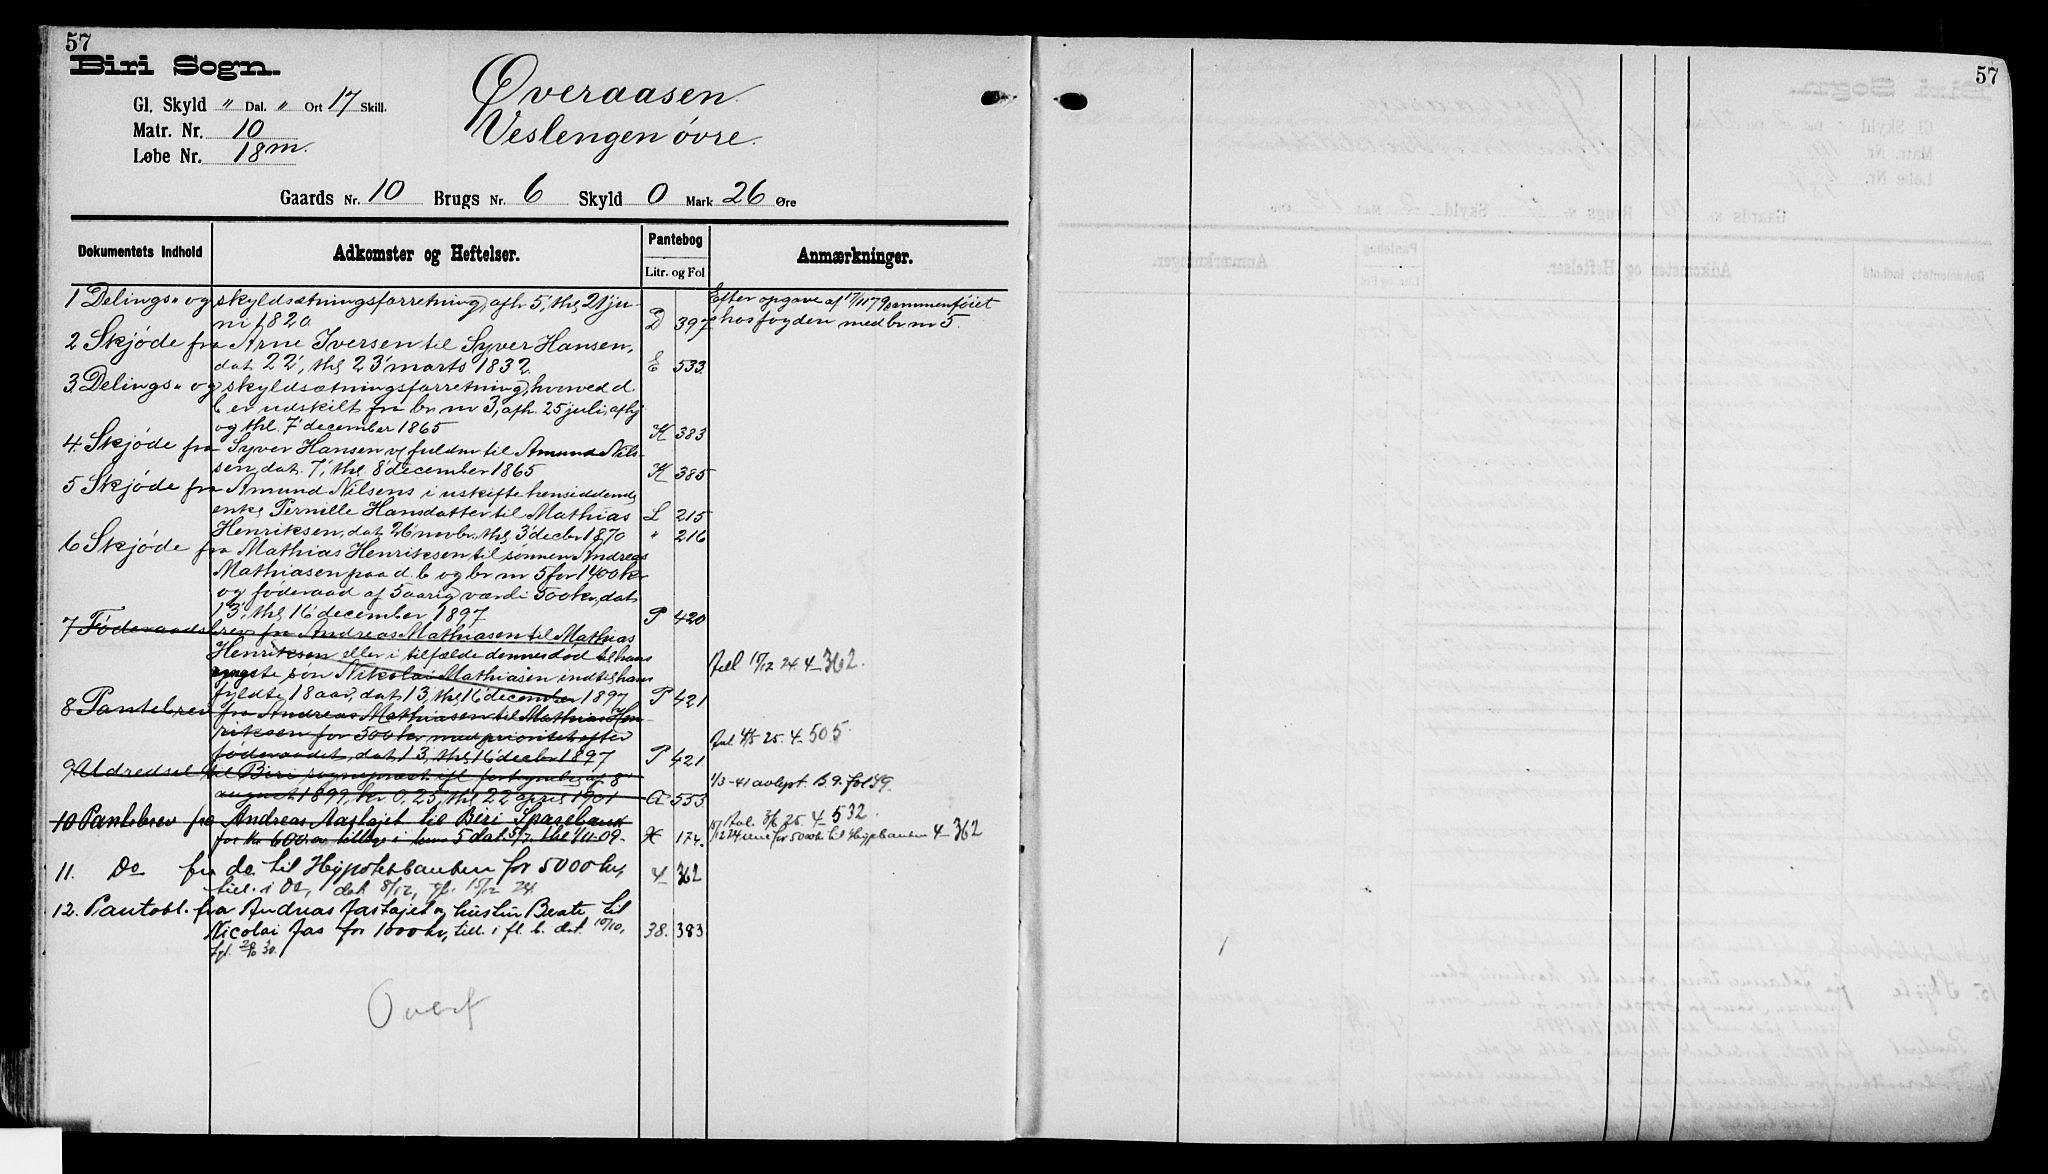 57
Biri Sogn.
Gl. Skyld " Dal. " Ort 17 Skill.
Matr. Nr. 10
Løbe Nr. 18m.
Øveraasen.
Veslengen övre.
Gaards Nr. 10 Brugs Nr. 6 Skyld 0 Mark 26 Øre
Dokumentets Indhold Adkomster og Heftelser. Pantebog Litr. og Fol Anmærkninger.
1 Delings- og skyldsætningsforretning, afh. 5', thl. 21 ju-
ni 1820. D 397
Efter opgave af 17/11 79 sammenføiet
hos fogden med br nr 5.
2 Skjøde fra Arne Iversen til Syver Hansen,
dat. 22', thl. 23' marts 1832. E 533
3 Delings- og skyldsætningsforretning, hvorved d.
b. er udskilt fra br nr 3, afh. 25 juli, afhj
og thl. 7' december 1865 K 383
4. Skjøde fra Syver Hansen v/ fuldm til Amund Nils-
sen, dat. 7', thl. 8' december 1865 K 385
5 Skjøde fra Amund Nilsens i uskifte hensiddende
enke Pernille Hansdatter til Mathias L 215
Henriksen, dat. 26' novbr, thl. 3' decbr 1870 " 216
6 Skjøde fra Mathias Henriksen til sønnen Andreas
Mathiasen paa d. b. og br nr 5 for 1400 kr
og føderaad af 5 aarig værdi 500 kr, dat.
13', thl. 16' december 1897 P 420
7 Føderaadsbrev fra Andreas Mathiasen til Mathias
Henriksen eller i tilfælde dennes død til hans
yngste søn Nikolai Mathiasen indtil hans
fyldte 18 aar, dat. 13, thl. 16' december 1897 P 421
15/12 24 4-362.
8 Pantebrev fra Andreas Mathiasen til Mathias Hen-
riksen for 500 kr med prioritet efter
føderaadet, dat. 13, thl. 16' decbr 1897 P 421
25. 4-505.
9 Udredsel til Biri sognepræst ifl. fortegnelse af 8'
august 1899, kr 0,25, thl. 22 april 1901 533
1/3-41 avløst. B. 9. fol 49.
10 Pantebrev fra Andreas Aastajet til Biri Sparebank
for kr 600.00 tillige i brnr 5 dat 5/7, thl 1/11-09. X 174.
25. 4-532.
for 5000 kr til Hypbanken 4-362
11. Do fra do. til Hypotekbanken for 5000 kr, 4 362
till. i dat. 8/12, gl. 15/12 24.
12. Pantobl. fra Andreas Aastajet og hustru Beate til
Nicolai Aas for 1000 kr, till. i fl. b. dat. 10/10, 38. 383
tgl. 30.
Overf
57